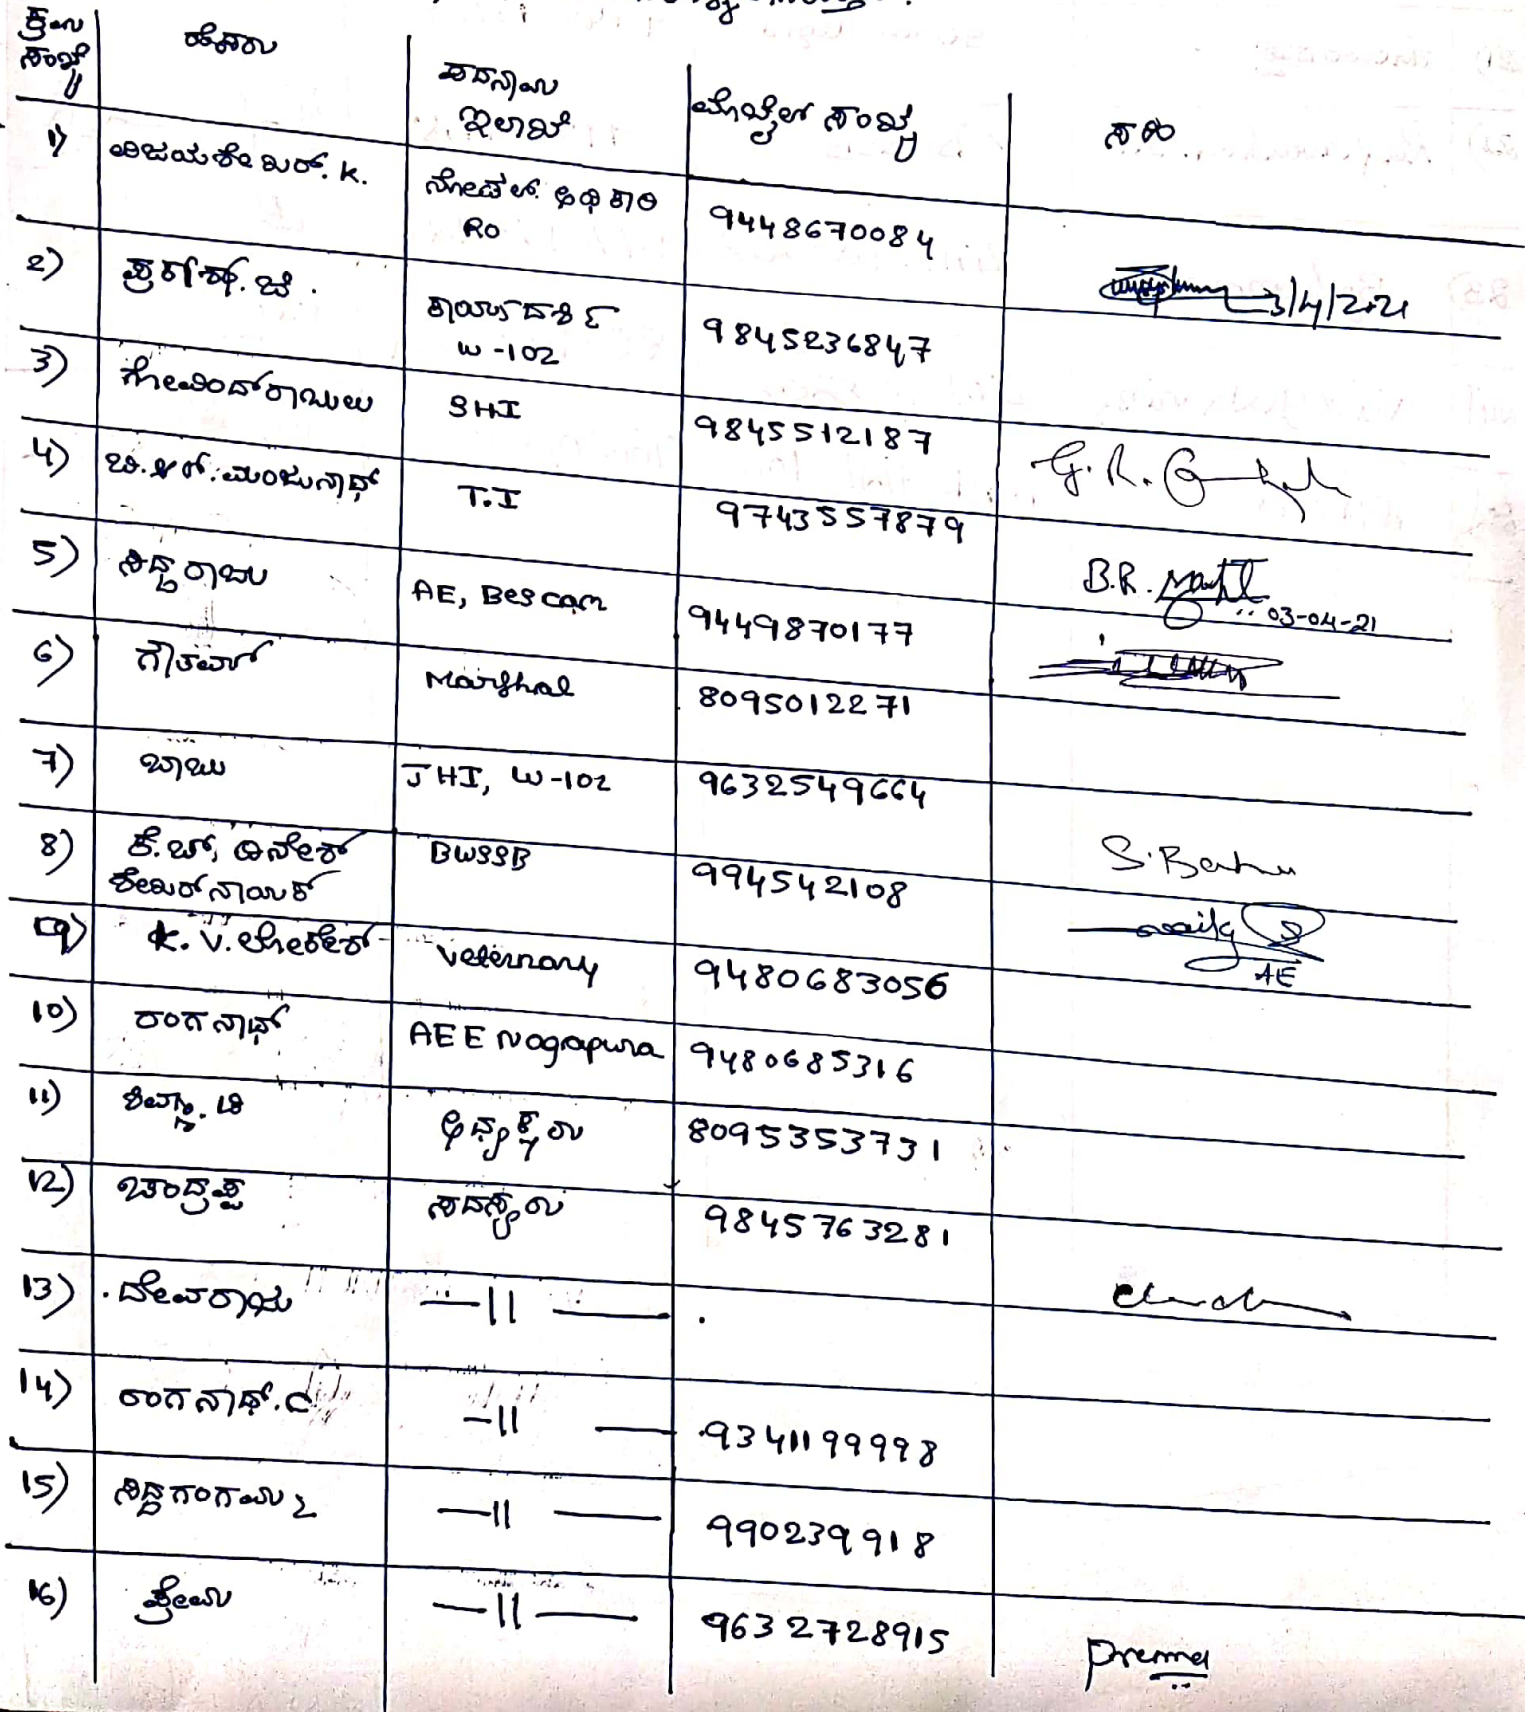 ಕ್ರಮ ಸಂಖ್ಯೆ ಹೆಸರು ಪದನಾಮ ಇಲಾಖೆ ಮೊಬೈಲ್ ಸಂಖ್ಯೆ ಸಹಿ
1) ವಿಜಯಶೇಖರ್. K. ನೋಡಲ್. ಅಧಿಕಾರಿ RO 9448670084
2) ಪ್ರಕಾಶ್. ಜೆ. ಕಾರ್ಯದರ್ಶಿ W-102 9845236847 3/4/2021
3) ಗೋವಿಂದ್ ರಾಜುಲು SHI 9845512187 G.R.
4) ಬಿ.ಆರ್. ಮಂಜುನಾಥ್ T.I 9743557879 B.R. 03-04-21
5) ಸಿದ್ದರಾಜು AE, Bescom 9449870177
6) ಗೌತಮ್ Marshal 8095012271
7) ಬಾಬು JHI, W-102 9632549664 S. Babu
8) ಕೆ.ಎಚ್, ದಿನೇಶ್ ಶೇಖರ್ ನಾಯಕ್ BWSSB 994542108 AE
9) K. V. ಲೋಕೇಶ್ Veternary 9480683056
10) ರಂಗನಾಥ್ AEE Nagapura 9480685316
11) ಶಿವಣ್ಣ. ಟಿ ಅಧ್ಯಕ್ಷರು 8095353731
12) ಚಂದ್ರಪ್ಪ ಸದಸ್ಯರು 9845763281
13) ದೇವರಾಜು —11—
14) ರಂಗನಾಥ್. C —11— 9341199998
15) ಸಿದ್ದಗಂಗಮ್ಮ —11— 990239918
16) ಪ್ರೇಮ —11— 9632728915 Prema